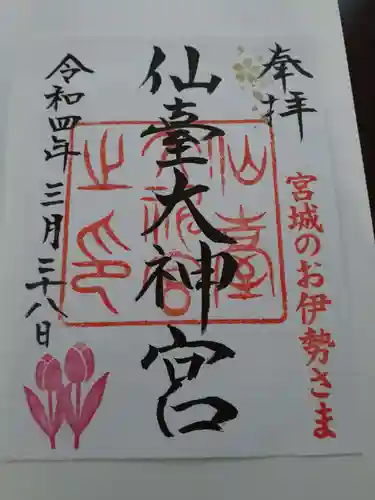 奉拝
宮城のお伊勢さま
仙臺大神宮
仙臺大神宮之印
令和四年三月二十八日